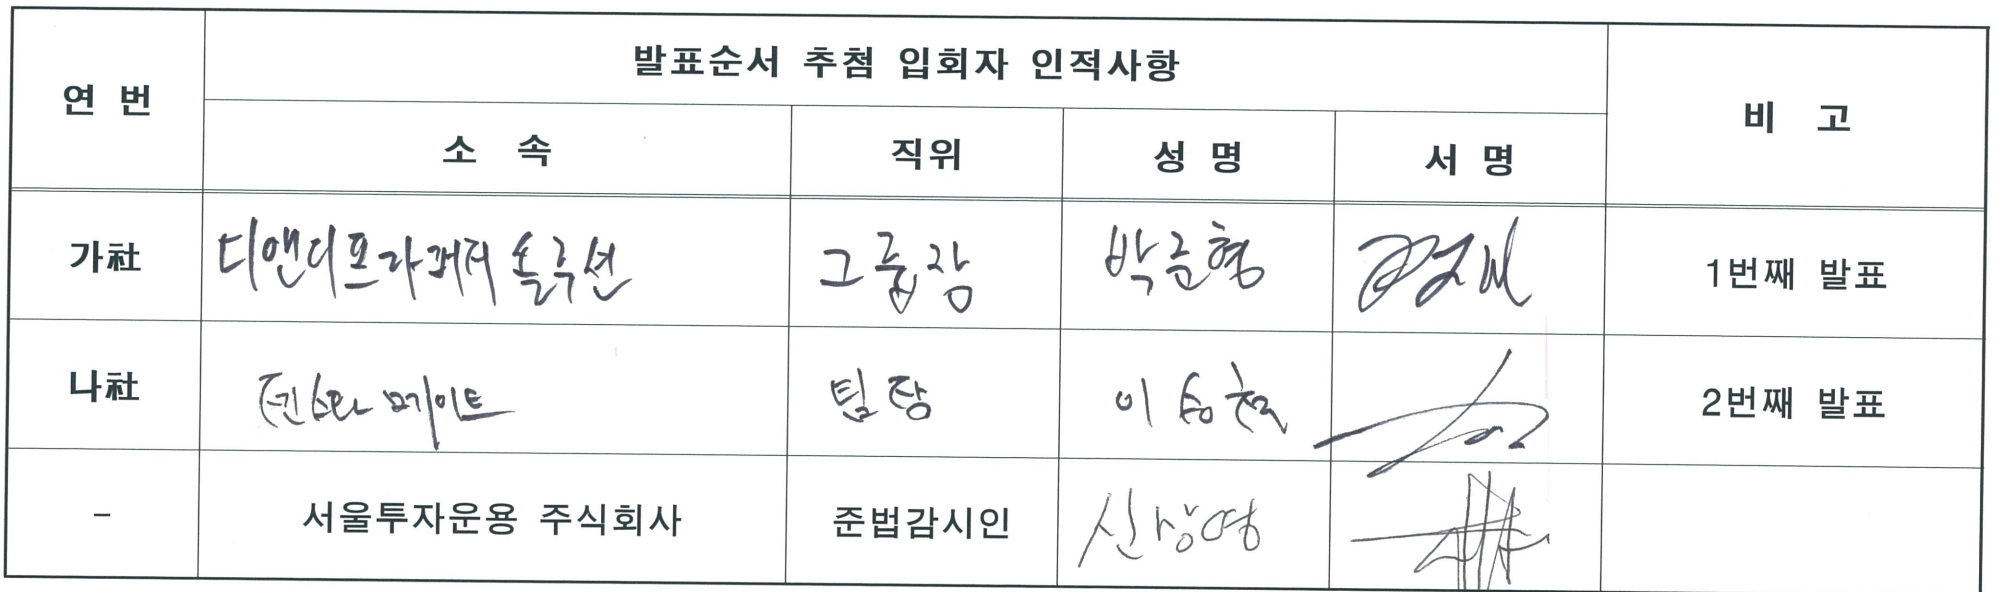 연 번 발표순서 추첨 입회자 인적사항 비 고
소 속 직위 성 명 서 명
가社 디앤디프라퍼티솔루션 그룹장 박준형 1번째 발표
나社 젠스타메이트 팀장 이승혁 2번째 발표
- 서울투자운용 주식회사 준법감시인 신상영